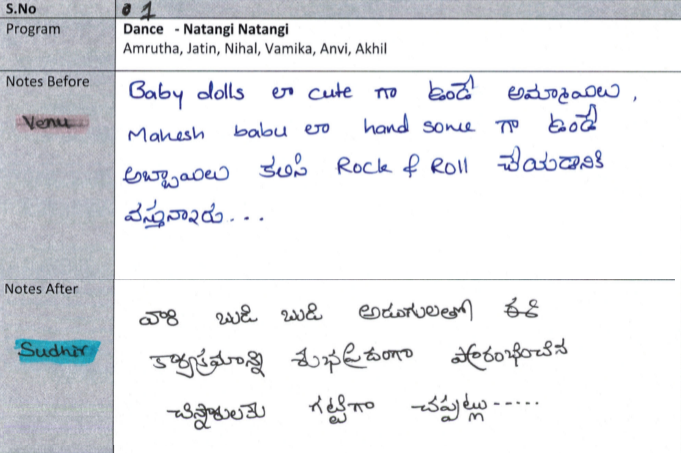 S.No 1
Program Dance - Natangi Natangi
Amrutha, Jatin, Nihal, Vamika, Anvi, Akhil
Notes Before
Venu
Baby dolls లా cute గా ఉండే అమ్మాయిలు,
Mahesh babu లా hand some గా ఉండే
అబ్బాయిలు కలిసి Rock & Roll చేయడానికి
వస్తున్నారు...
Notes After
Sudhir
వారి బుడి బుడి అడుగులతో ఈ
కార్యక్రమాన్ని శుభప్రదంగా ప్రారంభించిన
చిన్నారులకు గట్టిగా చప్పట్లు-----